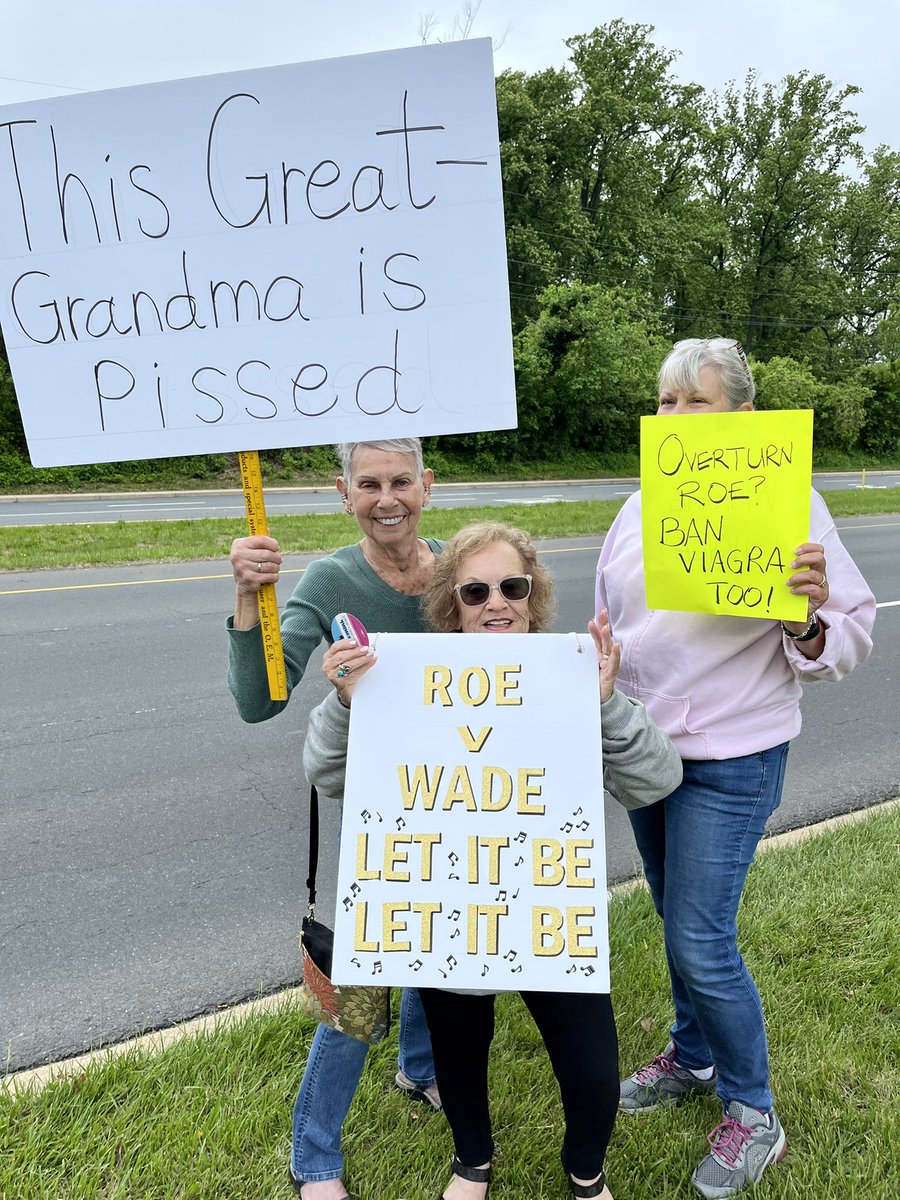 This Great-
Grandma is
Pissed
OVERTURN
ROE?
BAN
VIAGRA
TOO!
ROE
V
WADE
LET IT BE
LET IT BE